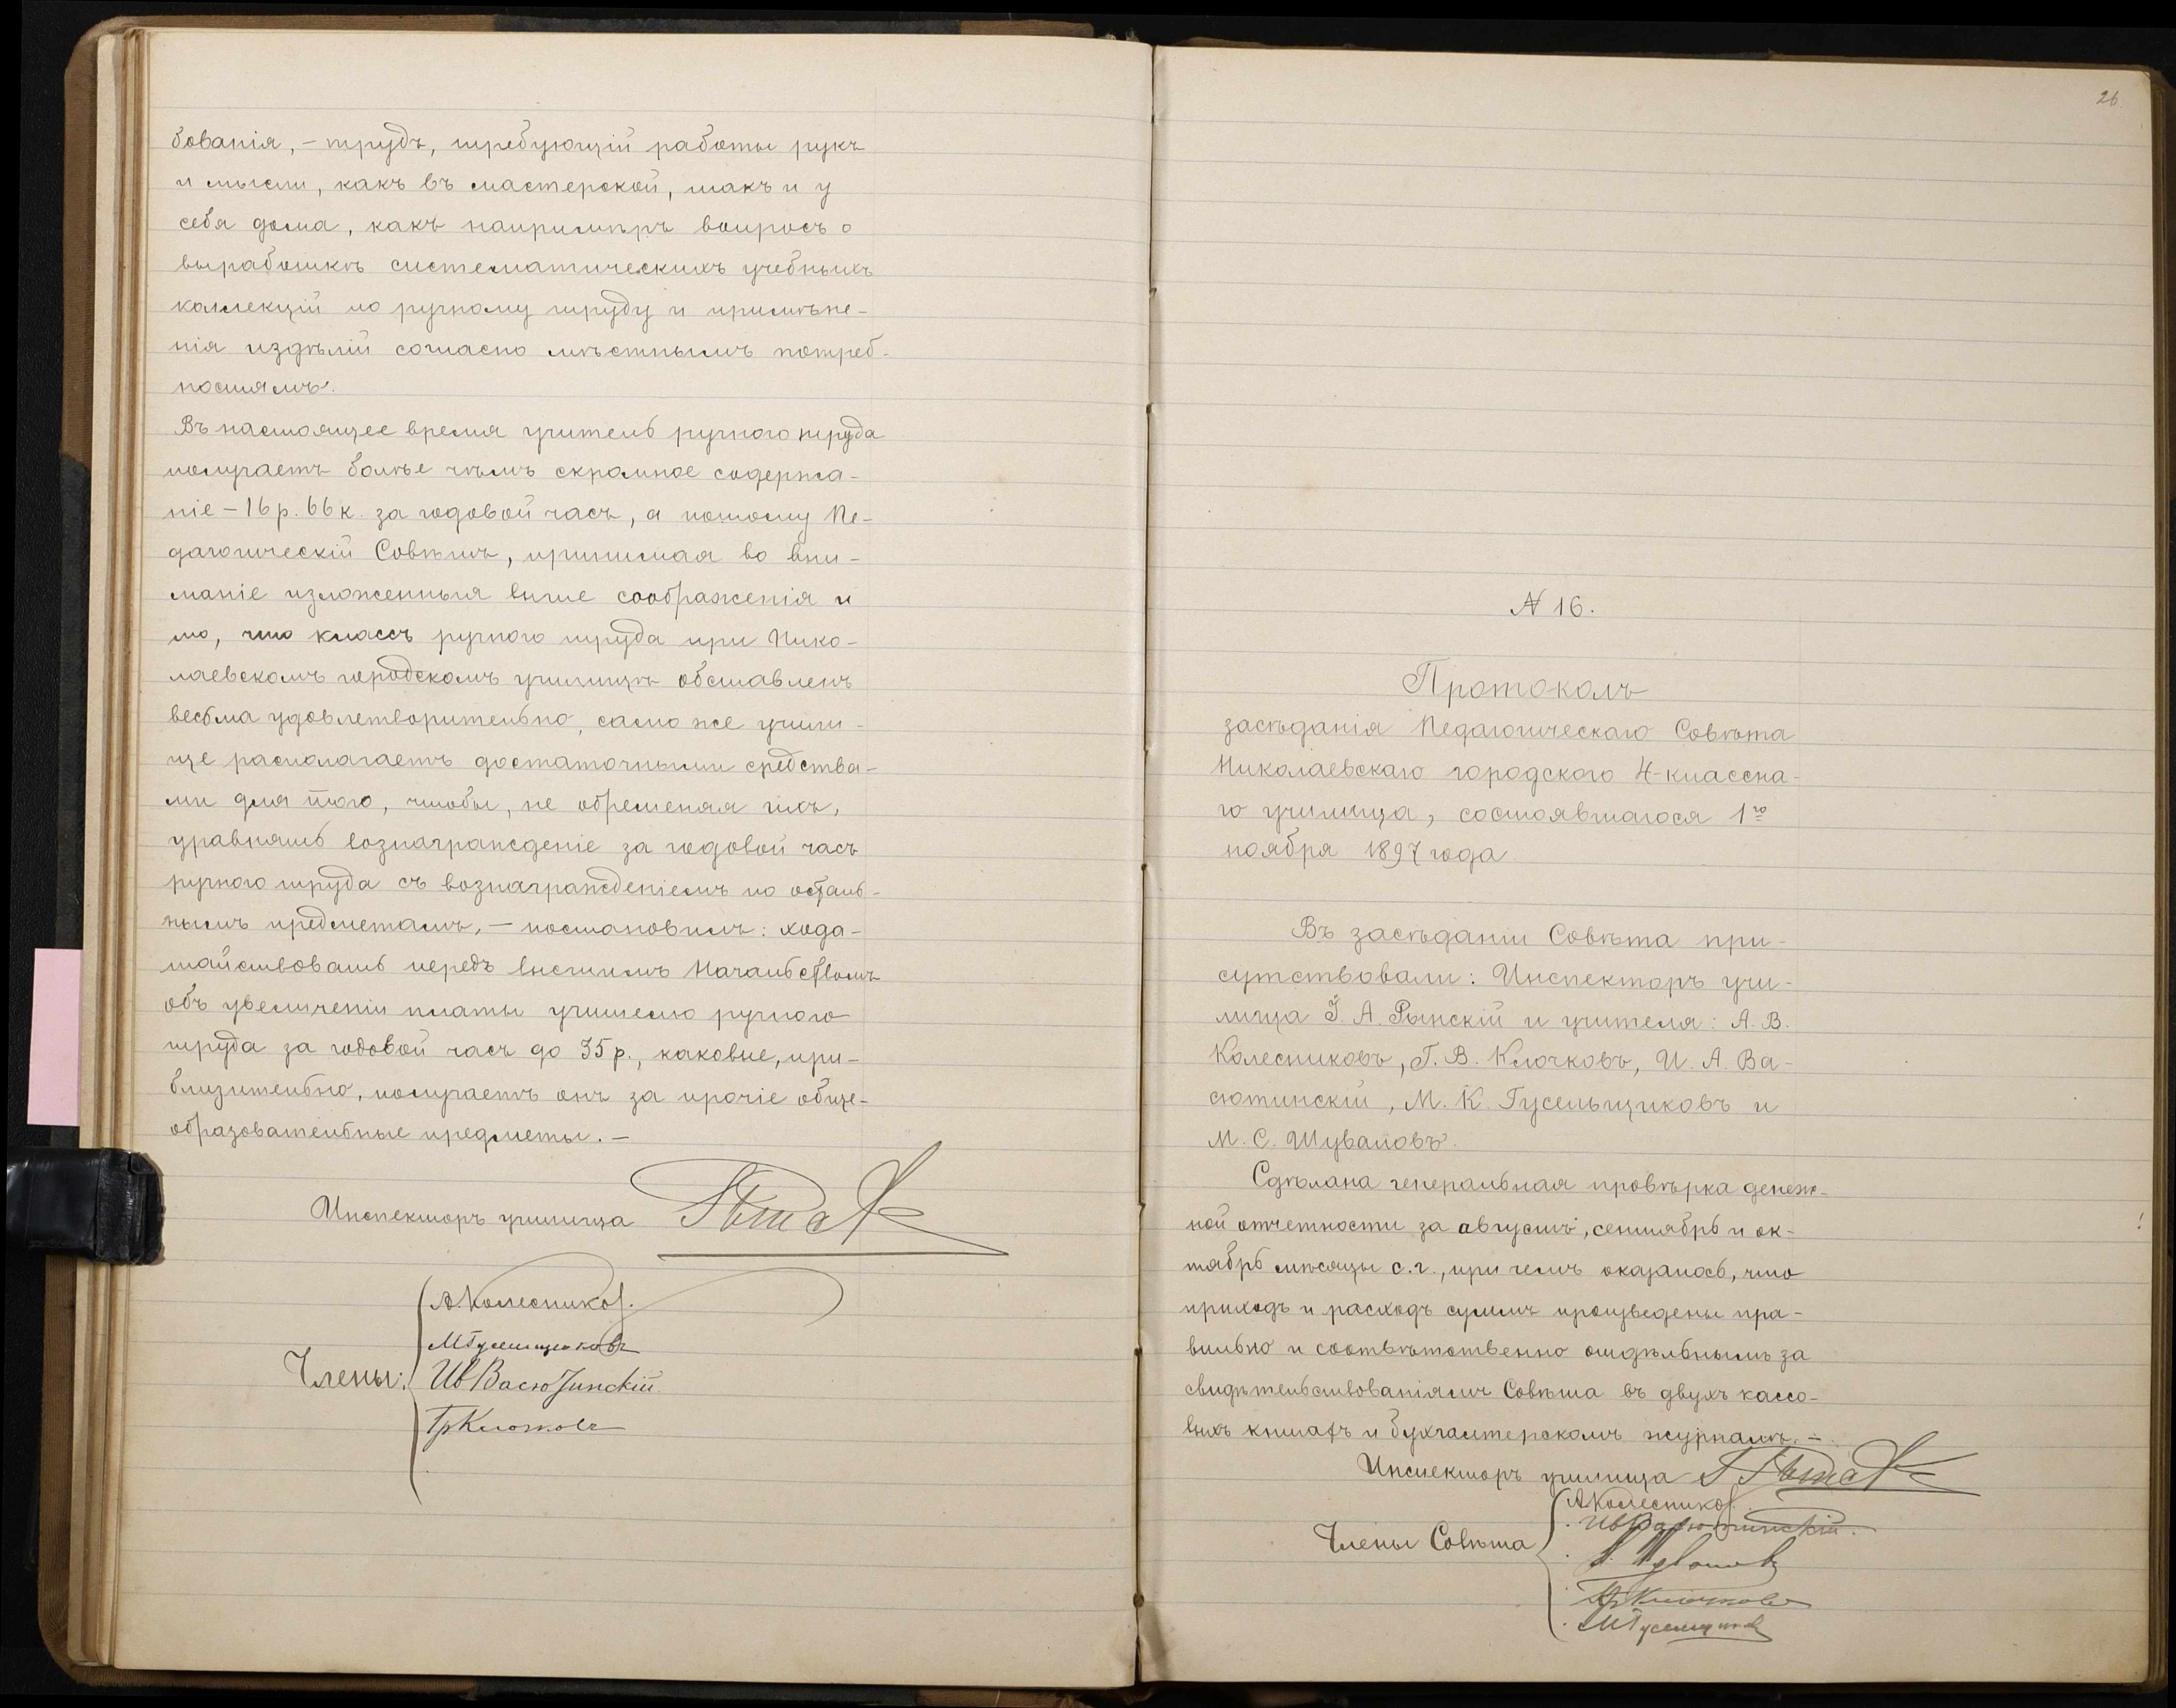 бованія, – трудъ, требующій работы рукъ
и мысли, какъ въ мастерской, такъ и у
себя дома, какъ напримѣръ вопросъ о
выработкѣ систематическихъ учебныхъ
коллекцій по ручному труду и примѣне-
нія издѣлій согласно мѣстнымъ потреб-
ностямъ.
Въ настоящее время учитель ручного труда
получаетъ болѣе чѣмъ скромное содержа-
ніе – 16 р. 66 к. за годовой часъ, а потому Пе-
дагогическій Совѣтъ, принимая во вни-
маніе изложенныя выше соображенія и
то, что классъ ручного труда при Нико-
лаевскомъ городскомъ училищѣ обставленъ
весьма удовлетворительно, само же учили-
ще располагаетъ достаточными средства-
ми для того, чтобы, не обременяя ихъ,
уравнять вознагражденіе за годовой часъ
ручного труда съ вознагражденіемъ по осталь-
нымъ предметамъ, – постановилъ: хода-
тайствовать передъ высшимъ Начальствомъ
объ увеличеніи платы учителю ручного
труда за годовой часъ до 35 р., каковые, при-
близительно, получаетъ онъ за прочіе обще-
образовательные предметы. –
Инспекторъ училища
А. Колесников.
МГусельщиковъ
Члены: Ив Васютинскій
Гр Клочковъ
26.
N 16.
Протоколъ
засѣданія Педагогическаго Совѣта
Николаевскаго городского 4-классна-
го училища, состоявшагося 1го
ноября 1897 года
Въ засѣданіи Совѣта при-
сутствовали: Инспекторъ учи-
лища І. А. Рынскій и учителя: А. В.
Колесниковъ, Г. В. Клочковъ, И. А. Ва-
сютинскій, М. К. Гусельщиковъ и
М. С. Шуваловъ.
Сдѣлана генеральная провѣрка денеж-
ной отчетности за августъ, сентябрь и ок-
тябрь мѣсяцы с. г., при чемъ оказалось, что
приходъ и расходъ суммъ произведены пра-
вильно и соотвѣтственно отдѣльнымъ за
свидѣтельствованіямъ Совѣта въ двухъ кассо-
выхъ книгахъ и бухгалтерскомъ журналѣ. –
Инспекторъ училища
А Колесников.
Ив Васютинскій.
Члены Совѣта
Шувалов
Гр Клочковъ
МГусельщиков